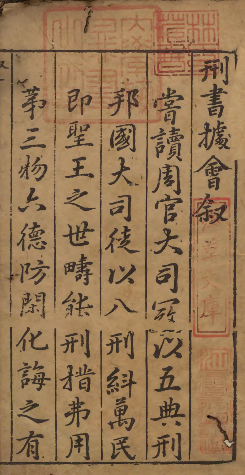 刑書據會叙
嘗讀周官大司冦以五典刑
邦國大司徒以八刑紏萬民
即聖王之世疇能刑措弗用
苐三物六德防閑化誨之有